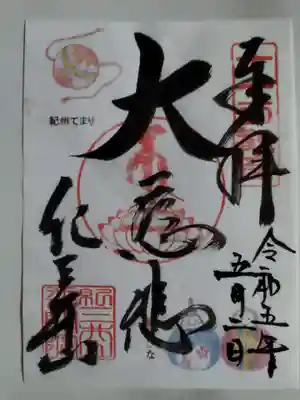 奉拝
令和五年
五月二日
大慈悲
紀三井寺
紀州てまり
な